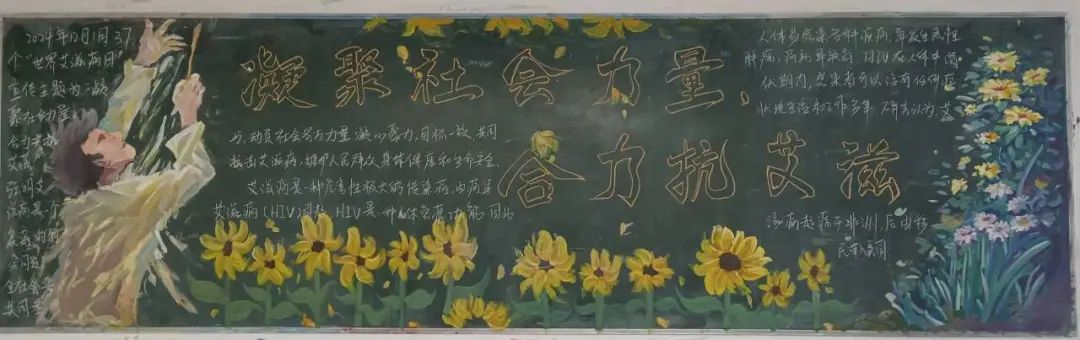 2024年12月1日是第37
个“世界艾滋病日”
宣传主题为“凝
聚社会力量
凝聚社会力量,
合力抗艾滋
与,动员社会各方力量,凝心聚力,目标一致,共同
抗击艾滋病,维护人民群众身体健康和生命安全。
艾滋病是一种危害性极大的传染病,由病
艾滋病(HIV)引起,HIV是一种人体免疫功能
全社会
共同
人体易感染各种疾病,可发生恶性
肿瘤,病死率较高,HIV在人体中潜
伏期内,感染者可以没有任何症
状地生活和工作多年。研究认为,艾
滋病起源于非洲,后由移
民带入美国